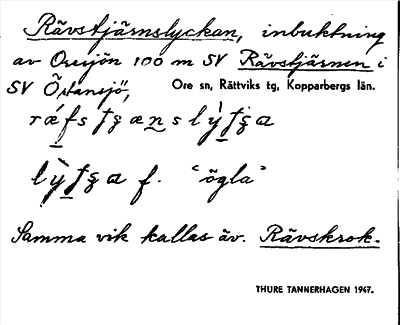 Rävstjärnslyckan, inbuktning
av Oresjön 100 m SV Rävstjärnen i
SV Östansjö, Ore sn, Rättviks tg, Kopparbergs län.
f. "ögla"
Samma vik kallas äv. Rävskrok.
THURE TANNERHAGEN 1947.